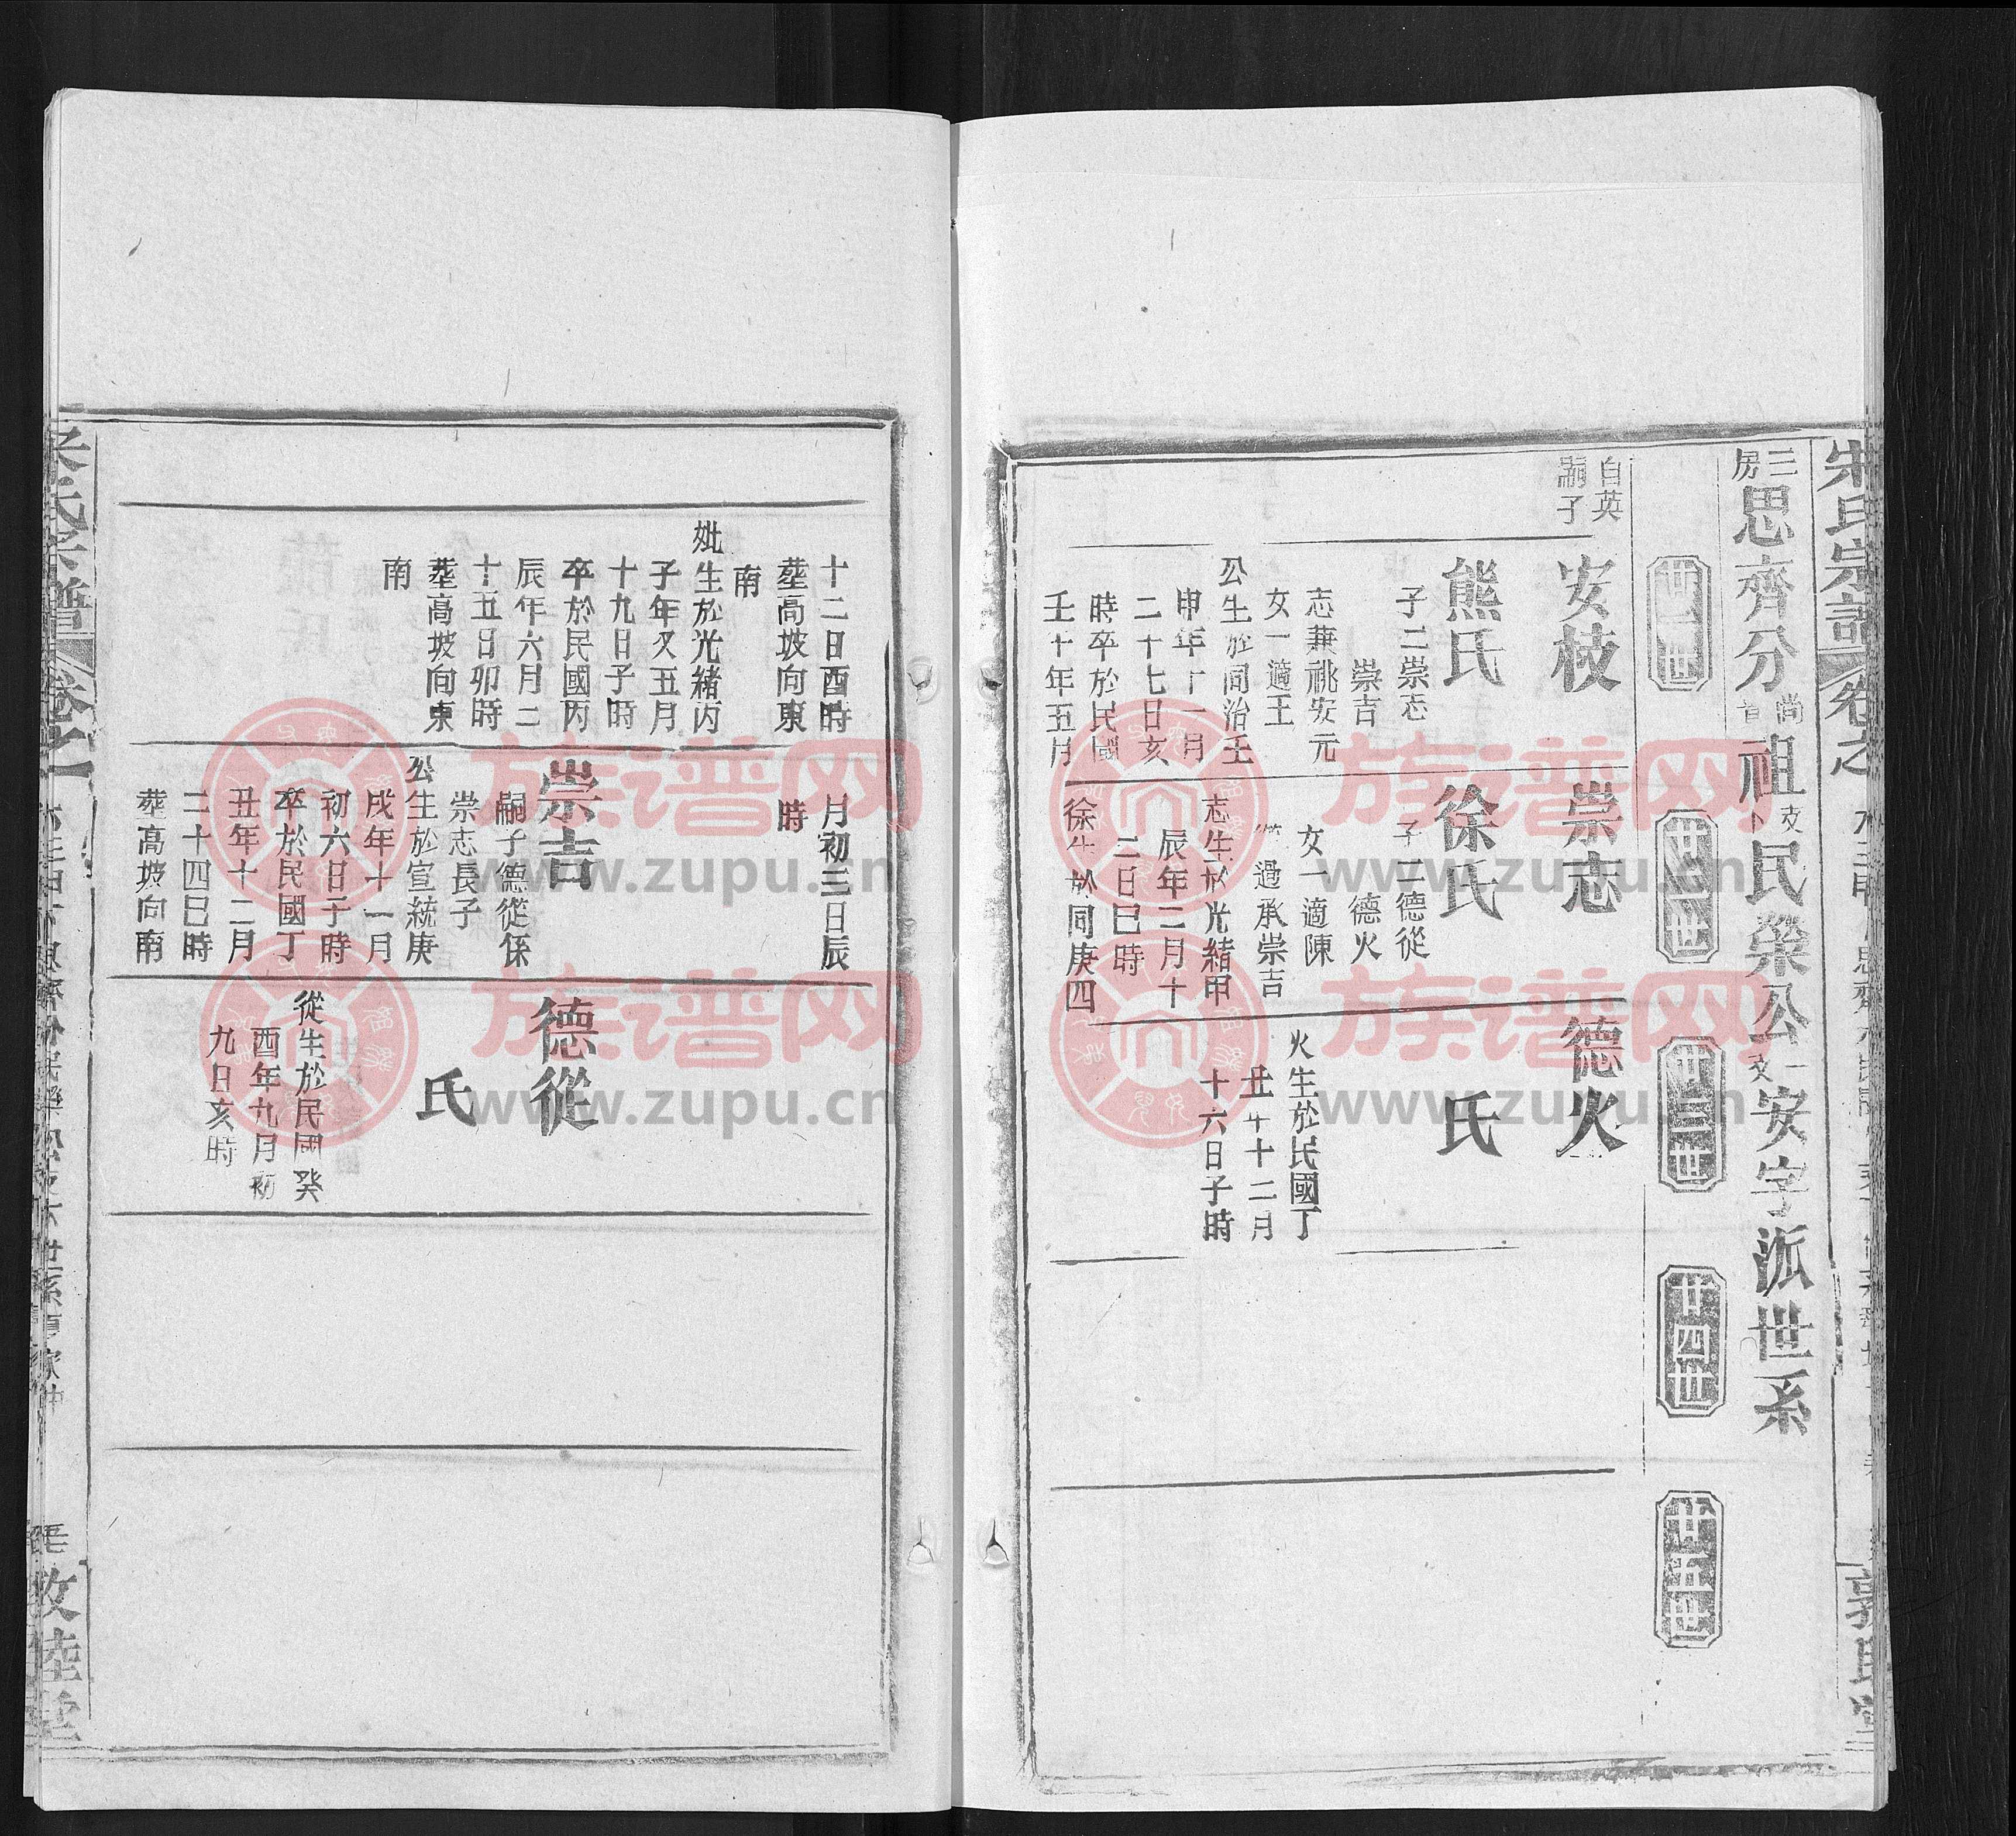 宋氏宗譜
卷之
三房思齊分尚音祖支卜民榮公一支安字派世系
廿一世
廿二世
廿三世
廿四世
廿五世
自英
嗣子
安枝
熊氏
子二崇志
崇吉
志兼祧安元
女一適王
公生於同治壬
申年十一月
二十七日亥
時卒於民國
壬十年五月
崇志
徐氏
子二德從
德火
女一適陳
過承崇吉
志生於光緒甲
辰年二月十
二日巳時
徐生於同庚四
德火
氏
火生於民國丁
丑年十二月
十六日子時
十二日酉時
塟高坡向東
南
妣生於光緒丙
子年又五月
十九日子時
卒於民國丙
辰年六月二
十五日卯時
塟高坡向東
南
月初三日辰
時
崇吉
嗣子德從係
崇志長子
公生於宣統庚
戌年十一月
初六日子時
卒於民國丁
丑年十二月
二十四巳時
塟高坡向南
德從
氏
從生於民國癸
酉年九月初
九日亥時
宋氏宗譜
卷之一
敦睦堂
族谱网
www.zupu.cn
族谱网
www.zupu.cn
族谱网
www.zupu.cn
族谱网
www.zupu.cn